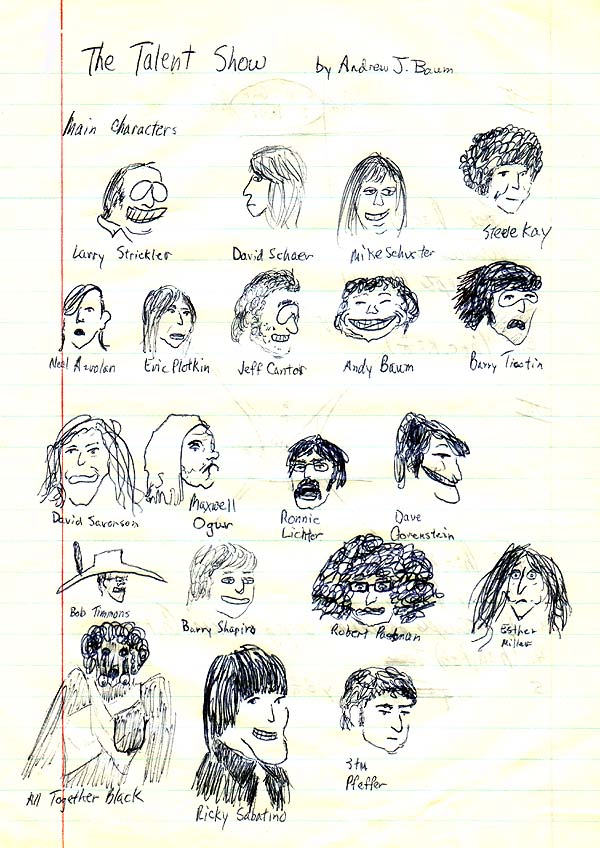 The Talent Show by Andrew J. Baum
Main Characters
Larry Strickler
David Schaer
Mike Schuster
Steve Kay
Neal Azrolan
Eric Plotkin
Jeff Cantor
Andy Baum
Barry Tiestin
David Sarorson
Maxwell
Ogur
Ronnie
Lichter
Dave
Gorenstein
Bob Timmons
Barry Shapiro
Robert
Esther
Miller
All Together Black
Ricky Sabatino
Pfeffer